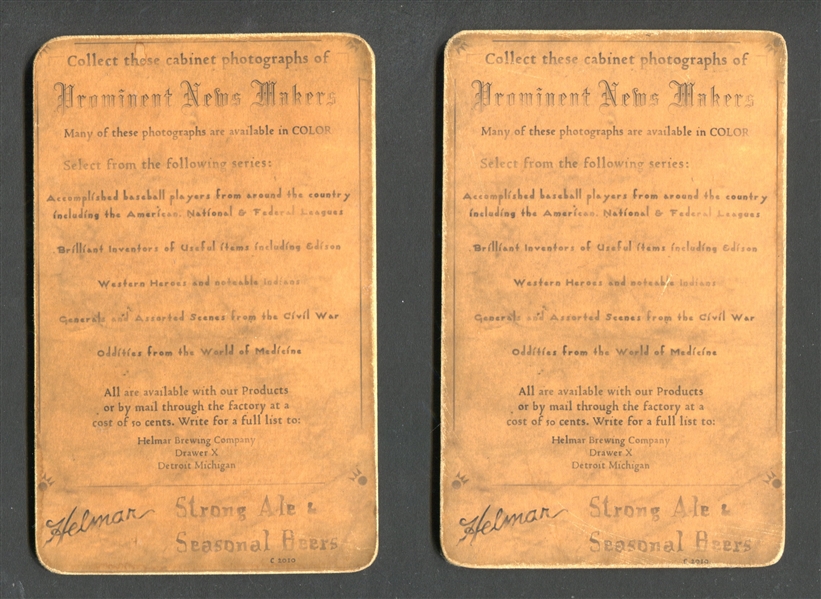 Collect these cabinet photographs of
Prominent News Makers
Many of these photographs are available in COLOR
Select from the following series:
Accomplished baseball players from around the country
including the American, National & Federal Leagues
Brilliant Inventors of Useful items including Edison
Western Heroes and noteable Indians
Generals and Assorted Scenes from the Civil War
Oddities from the World of Medicine
All are available with our Products
or by mail through the factory at a
cost of 10 cents. Write for a full list to:
Helmar Brewing Company
Drawer X
Detroit Michigan
Helmar
Strong Ale &
Seasonal Beers
C 2010
Collect these cabinet photographs of
Prominent News Makers
Many of these photographs are available in COLOR
Select from the following series:
Accomplished baseball players from around the country
including the American, National & Federal Leagues
Brilliant Inventors of Useful items including Edison
Western Heroes and noteable Indians
Generals and Assorted Scenes from the Civil War
Oddities from the World of Medicine
All are available with our Products
or by mail through the factory at a
cost of 10 cents. Write for a full list to:
Helmar Brewing Company
Drawer X
Detroit Michigan
Helmar
Strong Ale &
Seasonal Beers
C 2010